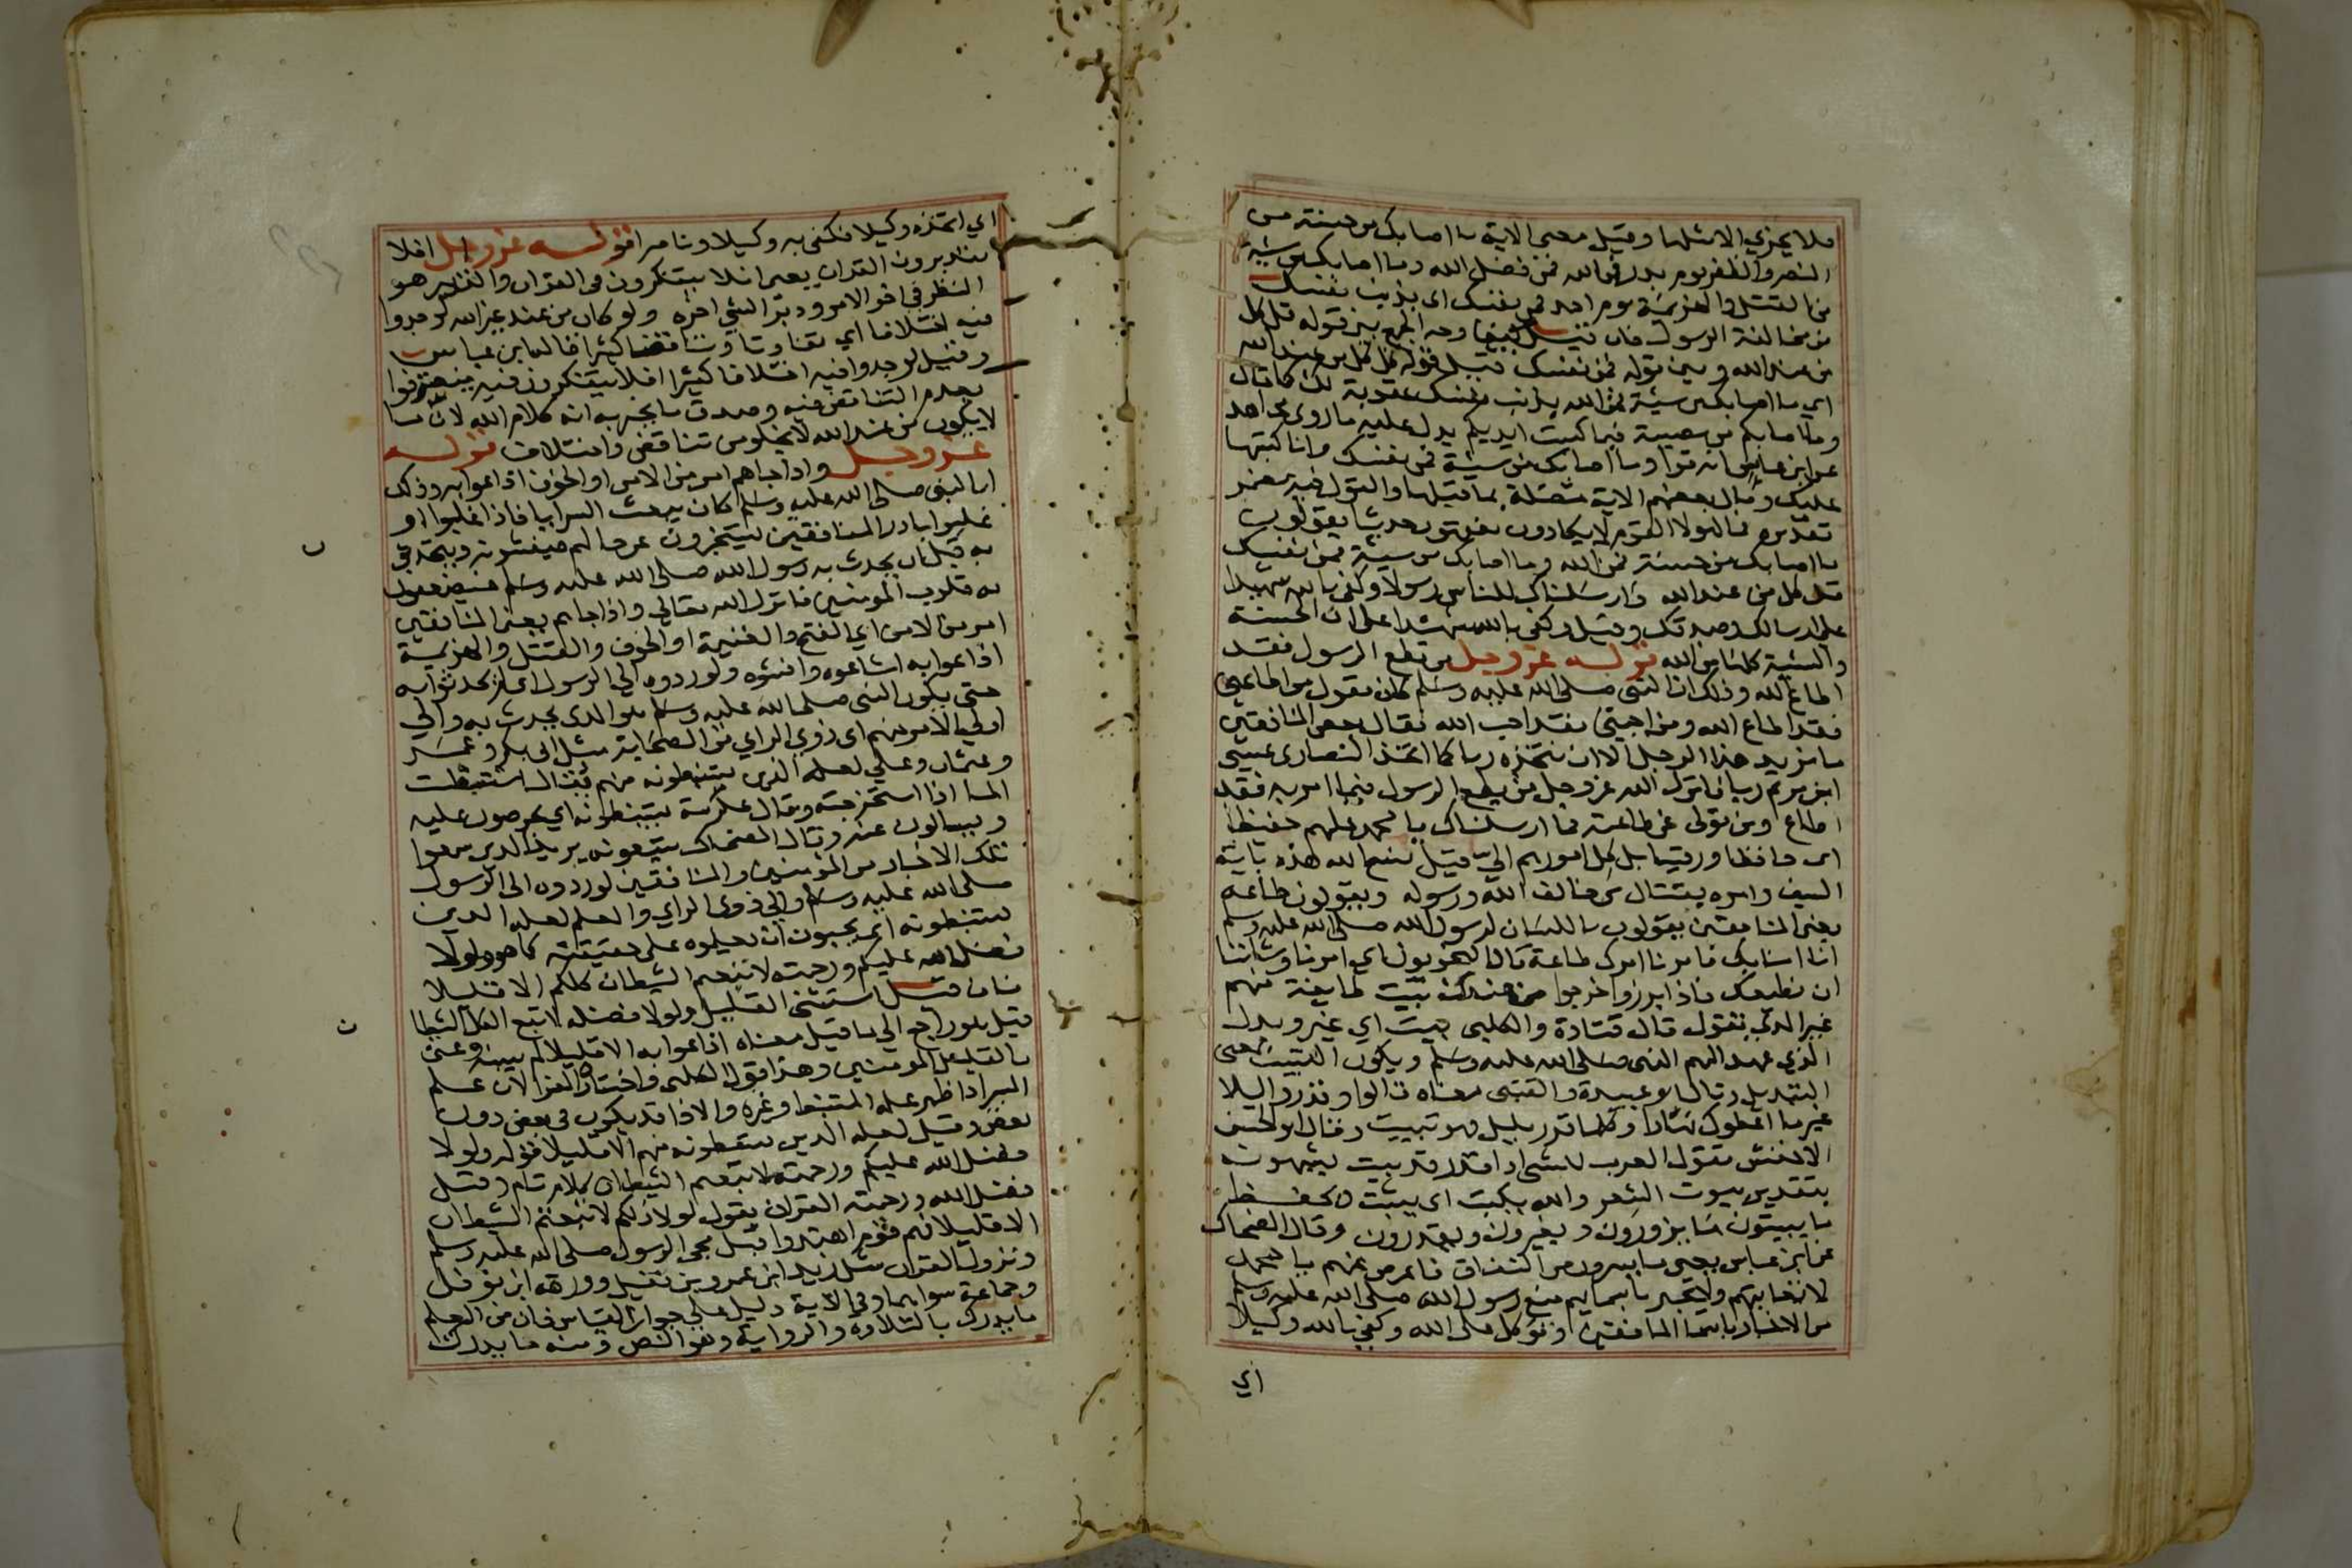 فلا يجزي الا مثلها وقيل معنى الاية ما اصابك من حسنة من
النصر والظفر يوم بدر فمن الله فمن فضل الله وما اصابك من سيئة
من القتل والهزيمة يوم احد فمن نفسك اي بذنب نفسك
من مخالفة الرسول فان قيل كيف وجه الجمع بين قوله قل كل
من عند الله وبين قوله فمن نفسك قيل قوله قل كل من عند الله
اي ما اصابك من سيئة فمن الله بذنب نفسك عقوبة لك كما قال
وما اصابكم من مصيبة فبما كسبت ايديكم يدل عليه ما روى مجاهد
عن ابن عباس انه قرا وما اصابك من سيئة فمن نفسك وانا كتبتها
عليك وقال بعضهم الاية متصلة بما قبلها والقول فيه مضمر
تقديره فمال هولا القوم لا يكادون يفقهون حديثا يقولون
ما اصابك من حسنة فمن الله وما اصابك من سيئة فمن نفسك
قل كل من عند الله وارسلناك للناس رسولا وكفى بالله شهيدا
على ارسالك وصدقك وقيل وكفى بالله شهيدا على ان الحسنة
والسيئة كلها من الله قوله عز وجل من يطع الرسول فقد
اطاع الله وذلك ان النبي صلى الله عليه وسلم كان يقول من اطاعني
فقد اطاع الله ومن احبني فقد احب الله فقال بعض المنافقين
ما يريد هذا الرجل الا ان نتخذه ربا كما اتخذ النصارى عيسى
ابن مريم ربا فانزل الله عز وجل من يطع الرسول فيما امر به فقد
اطاع ومن تولى عن طاعته فما ارسلناك يا محمد عليهم حفيظا
اي حافظا ورقيبا بل كل امورهم اليّ قيل نسخ الله هذه باية
السيف وامره بقتال من خالف الله ورسوله ويقولون طاعة
يعني المنافقين يقولون باللسان لرسول الله صلى الله عليه وسلم
انا امنا بك فامرنا امرك طاعة قال النحويون اي امرنا وشاننا
ان نطيعك فاذا برزوا خرجوا من عندك بيت طايفة منهم
غير الذي تقول قال قتادة والكلبي بيت اي غير وبدل
الذي عهد اليهم النبي صلى الله عليه وسلم ويكون التبييت بمعنى
التبديل وقال ابو عبيدة والقتبي معناه قالوا وقدروا ليلا
غير ما اعطوك نهارا وكلما قدر بليل فهو تبييت وقال ابو الحسن
الاخفش تقول العرب للشي اذا قدر قد بيت يشبهونه
بتقدير بيوت الشعر والله يكتب اي يثبت ويحفظ
ما يبيتون ما يزورون ويغيرون ويقدرون وقال الضحاك
عن ابن عباس يعني ما يسرون من النفاق فاعرض عنهم يا محمد
لا تعاتبهم ولا تخبر باسمايهم منع رسول الله صلى الله عليه وسلم
من الاخبار باسما المنافقين وتوكل على الله وكفى بالله وكيلا
اي
اي اتخذه وكيلا فكفى به وكيلا وناصرا قوله عز وجل افلا
يتدبرون القران يعني افلا يتفكرون في القران والتدبر هو
النظر في اخر الامر ودبر الشي اخره ولو كان من عند غير الله لوجدوا
فيه اختلافا اي تفاوتا وتناقضا كثيرا قاله ابن عباس
وقيل لوجدوا فيه اختلافا كثيرا افلا يتفكرون فيه فيعرفوا
بعدم التناقض فيه وصدق ما يخبر به انه كلام الله لان ما
لا يكون من عند الله لا يخلو من تناقض واختلاف قوله
عز وجل واذا جاهم امر من الامن او الخوف اذاعوا به وذلك
ان النبي صلى الله عليه وسلم كان يبعث السرايا فاذا غلبوا او
غلبوا بادر المنافقين يستخبرون عن حالهم فيفشونه ويحدثون
به قبل ان يحدث به رسول الله صلى الله عليه وسلم فيضعفون
به قلوب المومنين فانزل الله تعالى واذا جاهم يعني المنافقين
امر من الامن اي الفتح والغنيمة او الخوف والقتل والهزيمة
اذاعوا به اشاعوه وافشوه ولو ردوه الى الرسول اي لم يحدثوا به
حتى يكون النبي صلى الله عليه وسلم هو الذي يحدث به والى
اولي الامر منهم اي ذوي الراي من الصحابة مثل ابي بكر وعمر
وعثمان وعلي لعلمه الذين يستنبطونه منهم يقال استنبطت
الما اذا استخرجته وقال عكرمة يستنبطونه اي يحرصون عليه
ويسالون عنه وقال الضحاك يتبعونه يريد الذين سمعوا
تلك الاخبار من المومنين والمنافقين لو ردوه الى الرسول
صلى الله عليه وسلم والى ذوي الراي والعلم لعلمه الذين
يستنبطونه اي يحبون ان يعلموه على حقيقته كما هو ولولا
فضل الله عليكم ورحمته لاتبعتم الشيطان كلكم الا قليلا
فان قيل استثنى القليل ولولا فضله لاتبع الكل الشيطان
قيل هو راجع الى ما قبل معناه اذاعوا به الا قليلا لم يفشه وعنى
بالقليل المومنين وهذا قول الكلبي واختيار الفرا لان علم
السر اذا ظهر علمه المستنبط وغيره والاذاعة قد يكون في بعض دون
بعض وقيل لعلمه الذين يستنبطونه منهم الا قليلا قوله ولولا
فضل الله عليكم ورحمته لاتبعتم الشيطان كلام تام وقيل
فضل الله ورحمته القران يقول لولا ذلكم لاتبعتم الشيطان
الا قليلا فهم قوم اهتدوا قبل مجي الرسول صلى الله عليه وسلم
ونزول القران مثل زيد ابن عمرو بن نفيل وورقة ابن نوفل
وجماعة سواهما وفي الاية دليل على جواز القياس فان من العلم
ما يدرك بالتلاوة والرواية وهو النص ومنه ما يدرك